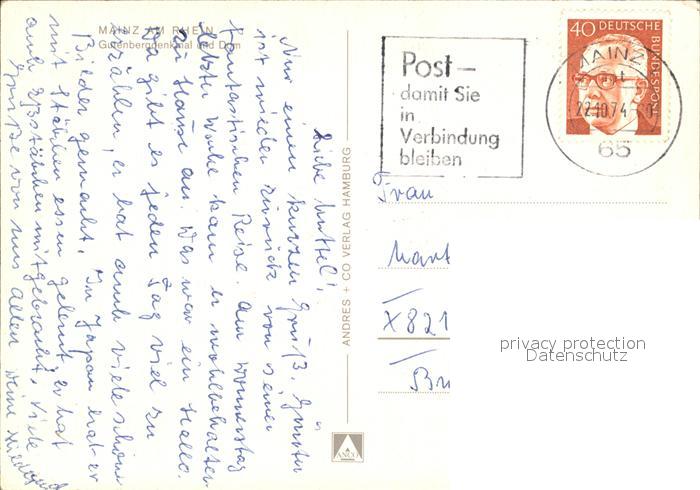 MAINZ AM RHEIN
Gutenbergdenkmal und Dom
Liebe Muttel!
Nur einen kurzen Gruß. Günter
ist wieder zurück von seiner
fantastischen Reise. Am Donnerstag
letzter Woche kam er wohlbehalten
zu Hause an. Das war ein Hallo.
Da gibt es jeden Tag viel zu
erzählen, er hat auch viele schöne
Bilder gemacht. In Japan hat er
mit Stäbchen essen gelernt, er hat
auch Eßstäbchen mitgebracht. Viele
Grüße von uns allen Deine
ANDRES + CO VERLAG HAMBURG
ANCO
Post –
damit Sie
in
Verbindung
bleiben
MAINZ 1
22.10.74
65
40 DEUTSCHE
BUNDESPOST
Frau
Mart
X821
privacy protection
Datenschutz